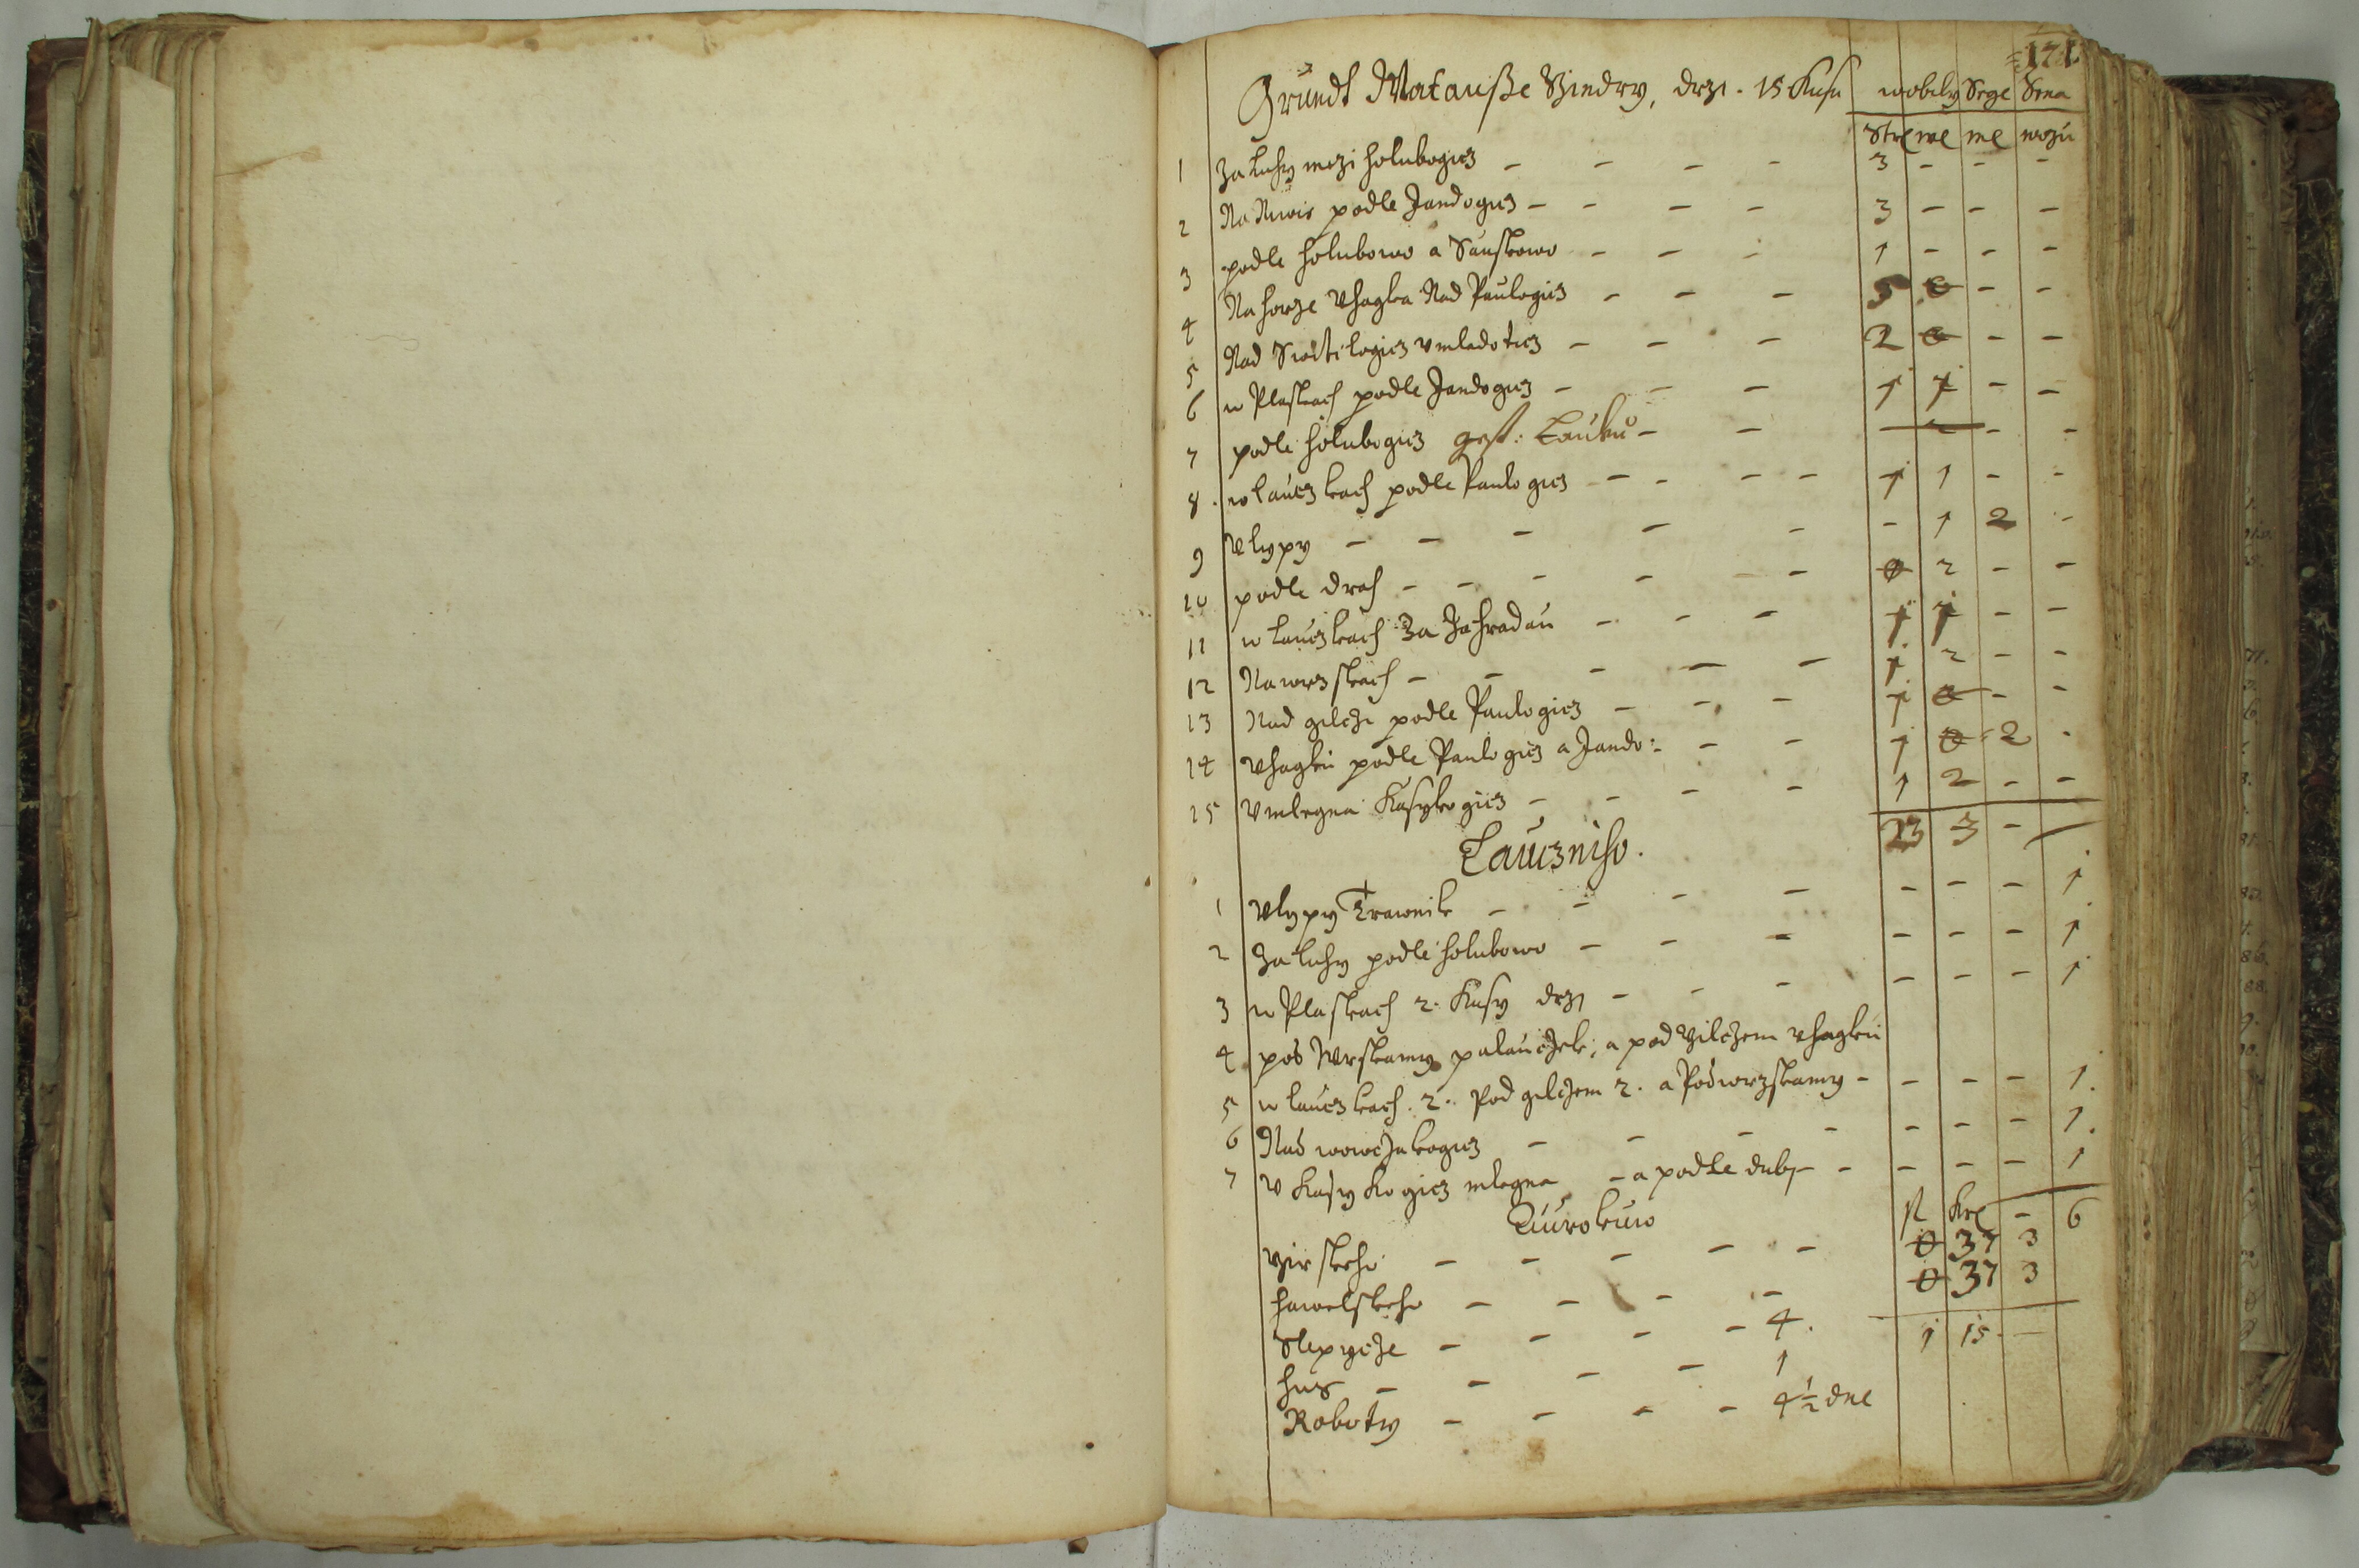 171
Grundt Matausse Vindry, drzi. 15 Kusu wobily Sege Sena
Str we me wozu
1 Za Luhy mezi holubogicz - - - - 3 - - -
2 Na Niwie podle Jandogicz - - - - 3 - - -
3 podle holubowo a Sauskowo - - - 1 - - -
4 Na horze Vhagka Nad Paulogicz - - - 5 0 - -
5 Nad Switilogicz vmladoticz - - - 2 0 - -
6 w Plaskach podle Jandogicz - - - 1 1 - -
7 podle holubogicz gest: Lauku - - - 2 - -
8. w lauczkach podle Paulogicz - - - - 1 1 - -
9 Vlypy - - - - - - 1 2 -
10 podle drah - - - - - 0 2 - -
11 w lauczkach Za Zahradau - - - 1 1 - -
12 Nawrzskach - - - - - 1 2 - -
13 Nad gilczi podle Paulogicz - - - 1 0 - -
14 Vhagku podle Paulogicz a Jando: - - 1 0 2 -
15 Vmlegna Kasykogicz - - - - 1 2 - -
23 3 -
Lauczniho.
1 Vlypy Trawnik - - - - - - - 1
2 Za Luhy podle holubowo - - - - - - 1
3 w Plaskach 2. Kusy drzi - - - - - - 1
4 pod Wrskamy palauczek, a pod Gilczem vhagku
5 w lauczkach. 2. Pod gilczem 2. a Podwrzskamy - - - - 1.
6 Nad wowczakogicz - - - - - - - 1.
7 V Kasykogicz mlegna - a podle duby - - - - - 1
Aurokuw
sl Kre - 6
Girskeho - - - - - 0 37 3
hawelskeho - - - - 0 37 3
Slepycze - - - - 4. 1 15 -
hus - - - - 1
Roboty - - - - 4 1/2 dne